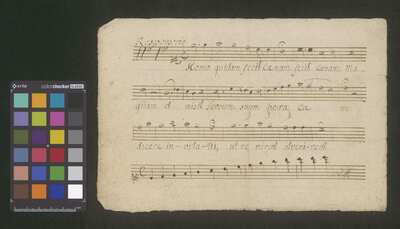 x-rite colorchecker CLASSIC
Homo quidam fecit Cænam fecit Cænam Ma _
gnam et misit servum suum hora, cæ
dicere in - vita - tis, ut ve nirent